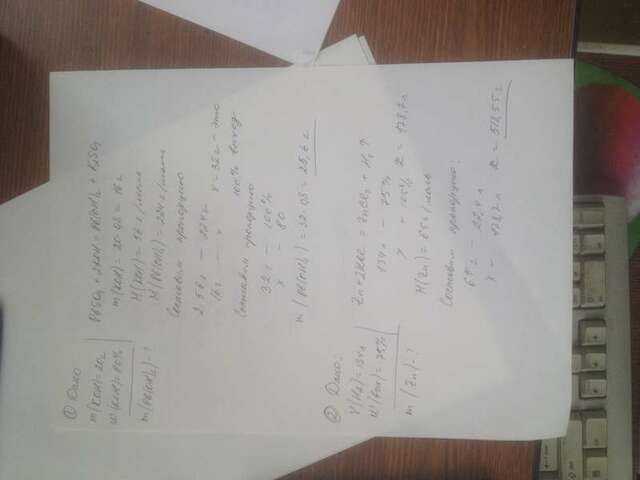 ① Дано
m(KOH)=20г
W(KOH)=80%
m(Pb(OH)₂)-?
PbSO₄ + 2KOH = Pb(OH)₂ + K₂SO₄
m(KOH) = 20·0,8 = 16г
M(KOH) = 56 г/моль
M(Pb(OH)₂) = 224 г/моль
Составим пропорцию
2·56г — 224г
16г — x x = 32г - это
100% выход
Составим пропорцию
32г — 100%
x — 80
m(Pb(OH)₂) = 32·0,8 = 25,6г
② Дано:
V(H₂)=134л
W(вых)=75%
m(Zn)-?
Zn + 2HCl = ZnCl₂ + H₂↑
134л — 75%
M(Zn) = 65г/моль
Составим пропорцию:
22,4л